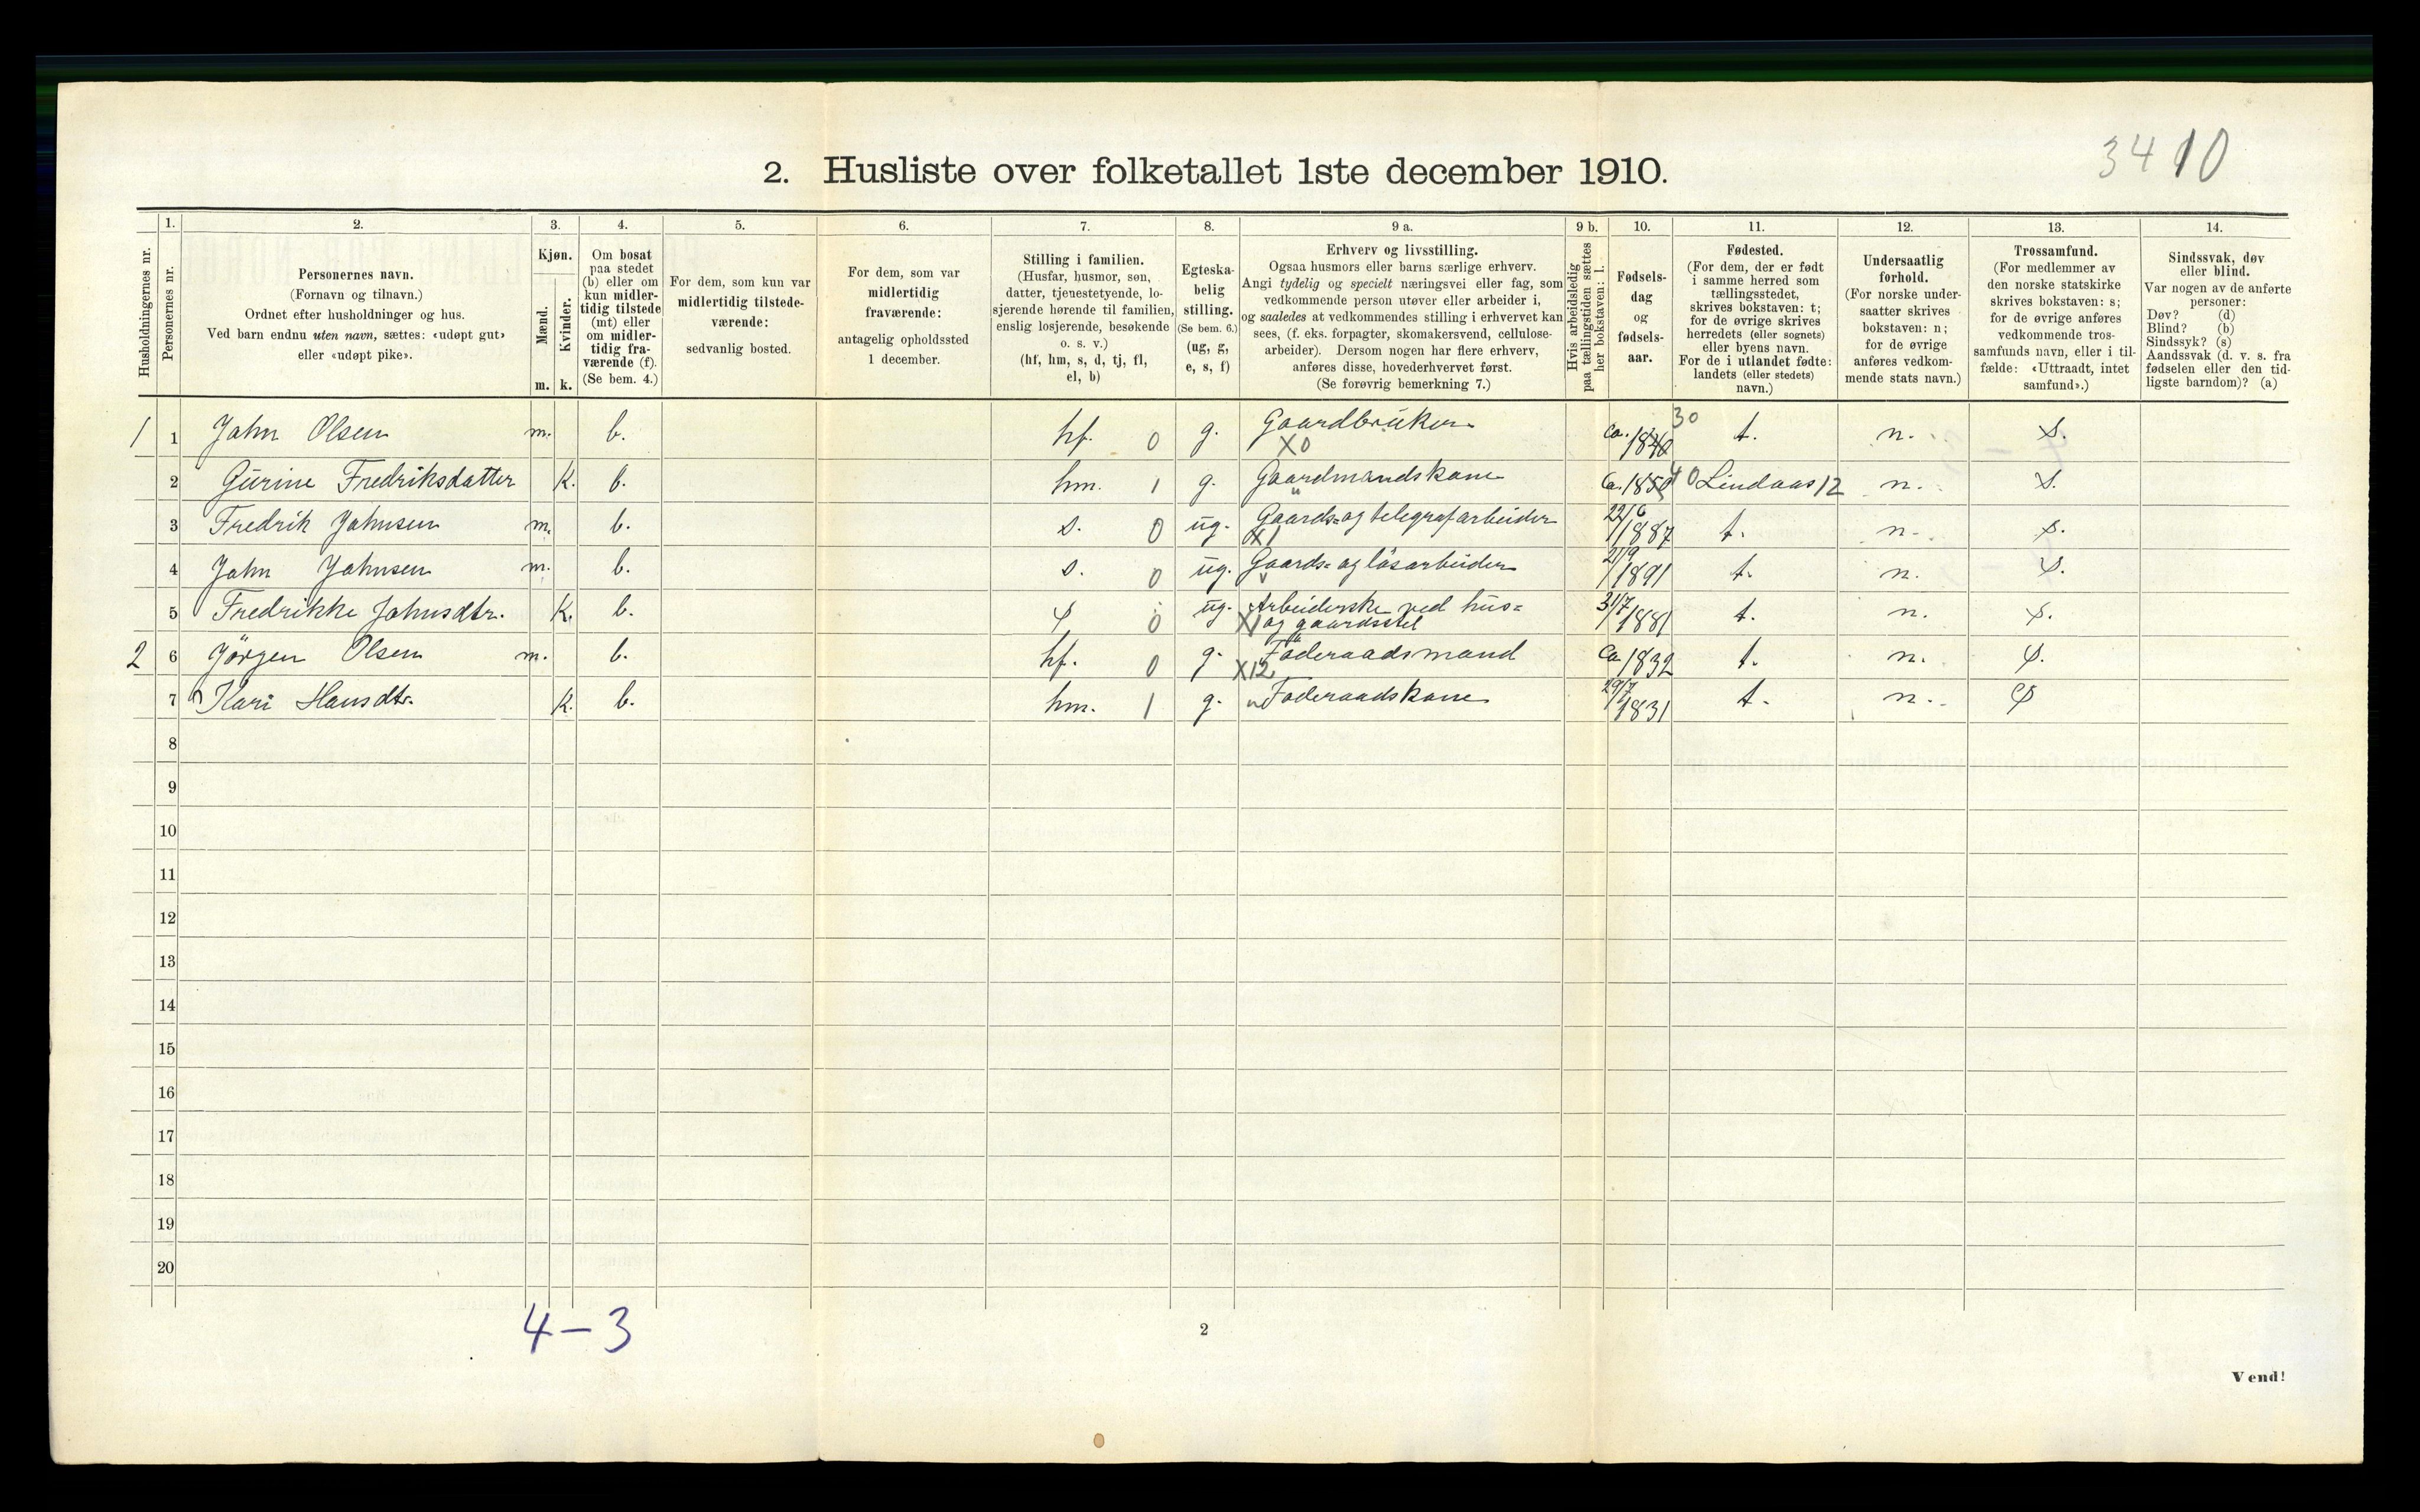 3410
2. Husliste over folketallet 1ste december 1910.
Husholdningernes nr.
1.
Personernes nr.
2.
Personernes navn.
(Fornavn og tilnavn.)
Ordnet efter husholdninger og hus.
Ved barn endnu uten navn, sættes: «udøpt gut»
eller «udøpt pike».
3.
Kjøn.
Mænd.
Kvinder.
m. k.
4.
Om bosat
paa stedet
(b) eller om
kun midler-
tidig tilstede
(mt) eller
om midler-
tidig fra-
værende (f).
(Se bem. 4.)
5.
For dem, som kun var
midlertidig tilstede-
værende:
sedvanlig bosted.
6.
For dem, som var
midlertidig
fraværende:
antagelig opholdssted
1 december.
7.
Stilling i familien.
(Husfar, husmor, søn,
datter, tjenestetyende, lo-
sjerende hørende til familien,
enslig losjerende, besøkende
o. s. v.)
(hf, hm, s, d, tj, fl,
el, b)
8.
Egteska-
belig
stilling.
(Se bem. 6.)
(ug, g,
e, s, f)
9 a.
Erhverv og livsstilling.
Ogsaa husmors eller barns særlige erhverv.
Angi tydelig og specielt næringsvei eller fag, som
vedkommende person utøver eller arbeider i,
og saaledes at vedkommendes stilling i erhvervet kan
sees, (f. eks. forpagter, skomakersvend, cellulose-
arbeider). Dersom nogen har flere erhverv,
anføres disse, hovederhvervet først.
(Se forøvrig bemerkning 7.)
9 b.
Hvis arbeidsledig
paa tællingstiden sættes
her bokstaven: l.
10.
Fødsels-
dag
og
fødsels-
aar.
11.
Fødested.
(For dem, der er født
i samme herred som
tællingsstedet,
skrives bokstaven: t;
for de øvrige skrives
herredets (eller sognets)
eller byens navn.
For de i utlandet fødte:
landets (eller stedets)
navn.)
12.
Undersaatlig
forhold.
(For norske under-
saatter skrives
bokstaven: n;
for de øvrige
anføres vedkom-
mende stats navn.)
13.
Trossamfund.
(For medlemmer av
den norske statskirke
skrives bokstaven: s;
for de øvrige anføres
vedkommende tros-
samfunds navn, eller i til-
fælde: «Uttraadt, intet
samfund».)
14.
Sindssvak, døv
eller blind.
Var nogen av de anførte
personer:
Døv? (d)
Blind? (b)
Sindssyk? (s)
Aandssvak (d. v. s. fra
fødselen eller den tid-
ligste barndom)? (a)
1 1 Jahn Olsen m. b. hf. 0 g. Gaardbruker X0 ca. 1840 30 t. n. s.
2 Gurine Fredriksdatter k. b. hm. 1 g. Gaardmandskone " Ca. 1850 40 Lindaas 12 n. s.
3 Fredrik Jahnsen m. b. s. 0 ug. Gaards- og telegrafarbeider X1 22/6 1887 t. n. s.
4 Jahn Jahnsen m. b. s. 0 ug. Gaards- og løsarbeider 21/9 1891 t. n. s.
5 Fredrikke Jahnsdtr. k. b. 0 ug. Arbeiderske ved hus=
X1 og gaardsstel 31/7 1881 t. n. s.
2 6 Jörgen Olsen m. b. hf. 0 g. Föderaadsmand X12 Ca. 1832 t. n. s.
7 Kari Hansdtr. k. b. hm. 1 g. " Föderaadskone 29/7 1831 t. n. s
8
9
10
11
12
13
14
15
16
17
18
19
20
4-3
2
Vend!